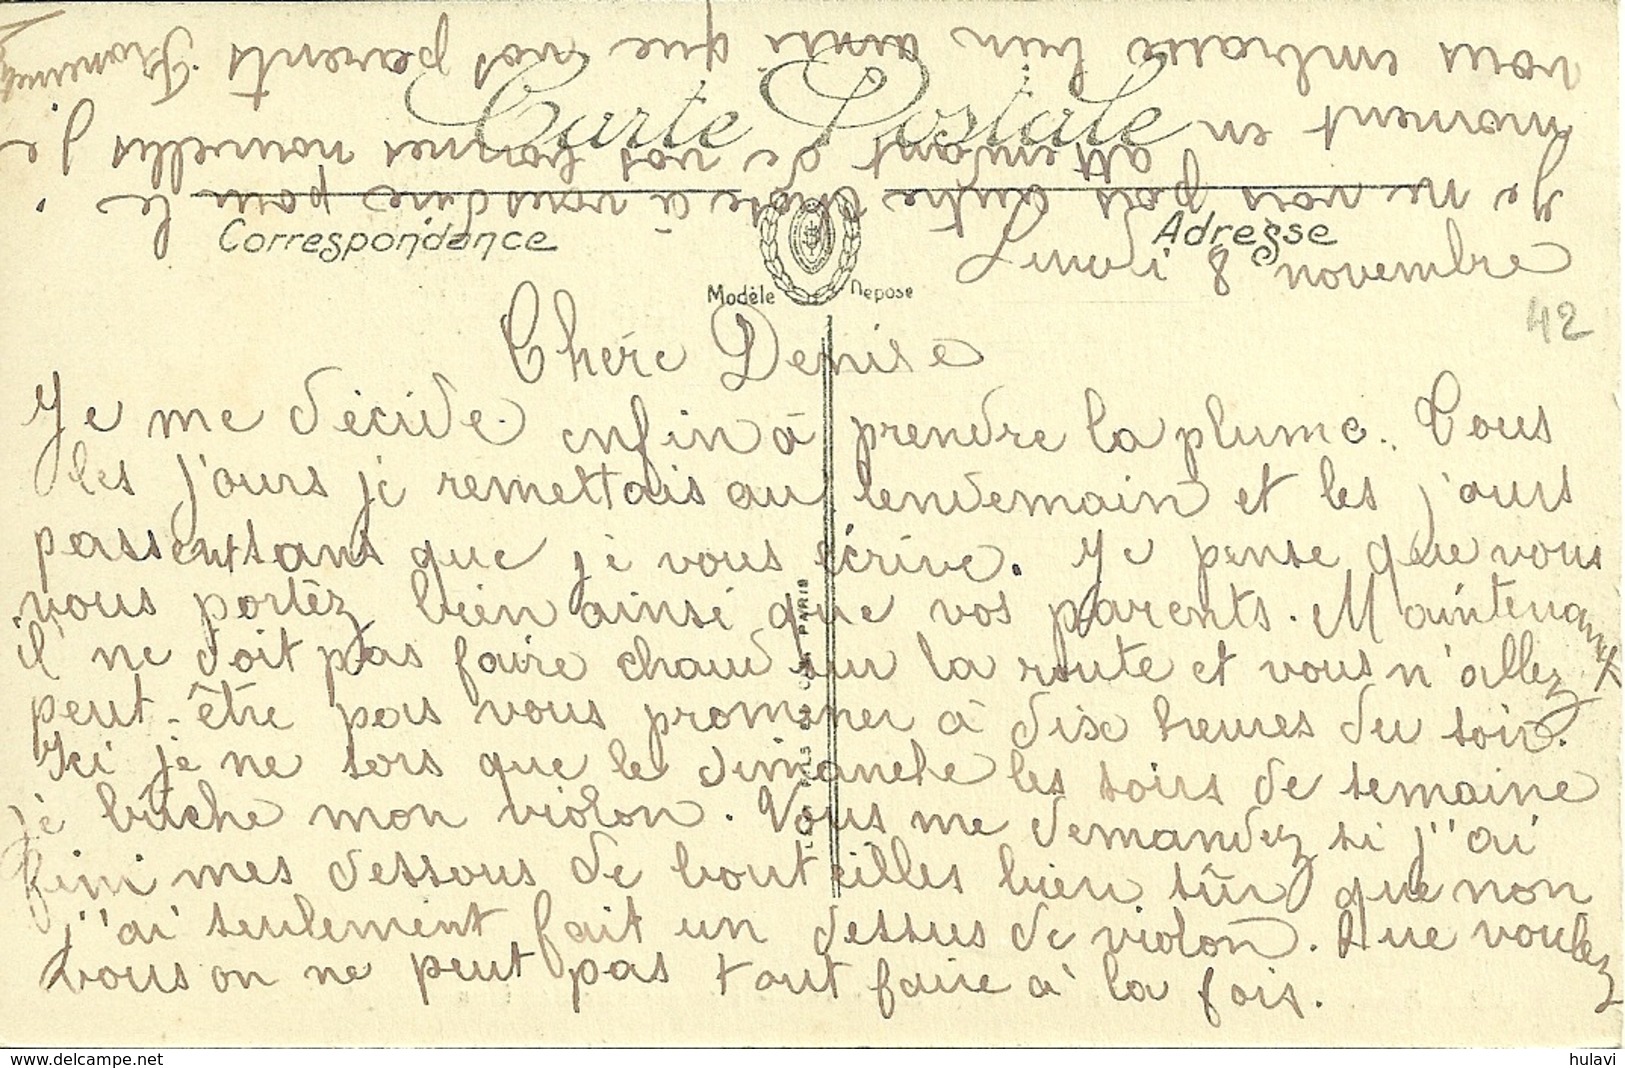 Carte Postale
Correspondance
Adresse
Modèle Déposé
Lundi 8 novembre
42
Chère Denise
Je me décide enfin à prendre la plume. Tous
les jours je remettais au lendemain et les jours
passent sans que je vous écrive. Je pense que vous
vous portez bien ainsi que vos parents. Maintenant
il ne doit pas faire chaud sur la route et vous n'allez
peut-être pas vous promener à dix heures du soir.
Ici je ne sors que le dimanche les soirs de semaine
je bûche mon violon. Vous me demandez si j'ai
fini mes dessous de bouteilles bien sûr que non
j'ai seulement fait un dessus de violon. Que voulez
vous on ne peut pas tout faire à la fois.
Je ne vois pas autre chose à vous dire pour le
moment en attendant de vos bonnes nouvelles Je
vous embrasse bien ainsi que vos parents
PARIS
hulavi
delcampe.net